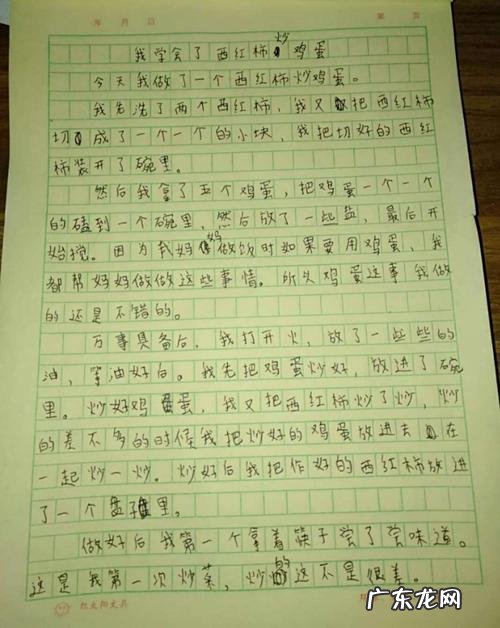 年 月 日 第 页
我学会了西红柿炒鸡蛋
今天我做了一个西红柿炒鸡蛋。
我先洗了两个西红柿，我又把西红柿
切成了一个一个的小块，我把切好的西红
柿装开了碗里。
然后我拿了五个鸡蛋，把鸡蛋一个一个
的磕到一个碗里，然后放了一些盐，最后开
始搅。因为我妈妈做饭时如果要用鸡蛋，我
都帮妈妈做做这些事情。所以鸡蛋这事我做
的还是不错的。
万事具备后，我打开火，放了一些些的
油，等油好后。我先把鸡蛋炒好，放进了碗
里。炒好鸡蛋，我又把西红柿炒了炒，炒
的差不多的时候我把炒好的鸡蛋放进去在
一起炒一炒。炒好后我把作好的西红柿放进
了一个盘子里。
做好后我第一个拿着筷子尝了尝味道。
这是我第一次炒菜，炒的这不是很差。
红太阳文具
广东龙网